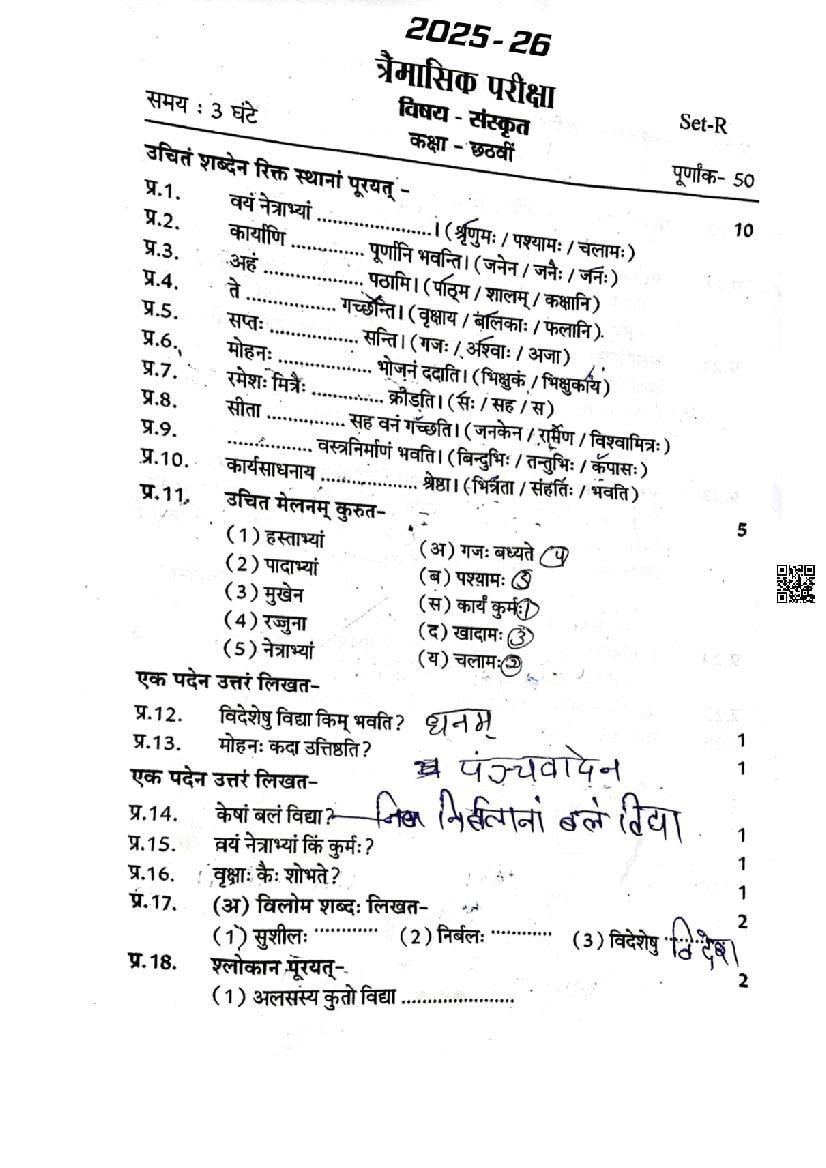 2025-26
त्रैमासिक परीक्षा
विषय - संस्कृत
कक्षा - छठवीं
समय : 3 घंटे
Set-R
पूर्णांक- 50
उचितं शब्देन रिक्त स्थानां पूरयत् -
10
प्र.1. वयं नेत्राभ्यां ........................। (श्रृणुमः / पश्यामः / चलामः)
प्र.2. कार्याणि ............... पूर्णानि भवन्ति। (जनेन / जनैः / जनः)
प्र.3. अहं .................... पठामि। (पाठ्म / शालम् / कक्षानि)
प्र.4. ते .................. गच्छन्ति। (वृक्षाय / बालिकाः / फलानि).
प्र.5. सप्तः .................. सन्ति। (गजः / अश्वाः / अजा)
प्र.6. मोहनः ................... भोजनं ददाति। (भिक्षुकं / भिक्षुकाय)
प्र.7. रमेशः मित्रैः .............. क्रीडति। (सः / सह / स)
प्र.8. सीता ................ सह वनं गच्छति। (जनकेन / रामेण / विश्वामित्रः)
प्र.9. ................. वस्त्रनिर्माणं भवति। (बिन्दुभिः / तन्तुभिः / कपासः)
प्र.10. कार्यसाधनाय .................... श्रेष्ठा। (भित्रता / संहतिः / भवति)
प्र.11. उचित मेलनम् कुरुत- 5
(1) हस्ताभ्यां (अ) गजः बध्यते
(2) पादाभ्यां (ब) पश्यामः
(3) मुखेन (स) कार्यं कुर्मः 1
(4) रज्जुना (द) खादामः 3
(5) नेत्राभ्यां (य) चलामः 2
एक पदेन उत्तरं लिखत-
प्र.12. विदेशेषु विद्या किम् भवति? धनम् 1
प्र.13. मोहनः कदा उत्तिष्ठति? पंञ्चवादेन 1
एक पदेन उत्तरं लिखत-
प्र.14. केषां बलं विद्या? बलं विद्या 1
प्र.15. वयं नेत्राभ्यां किं कुर्मः? 1
प्र.16. वृक्षाः कैः शोभते? 1
प्र.17. (अ) विलोम शब्दः लिखत- 2
(1) सुशीलः ............ (2) निर्बलः ............ (3) विदेशेषु ........
प्र.18. श्लोकान पूरयत्- 2
(1) अलसस्य कुतो विद्या ......................